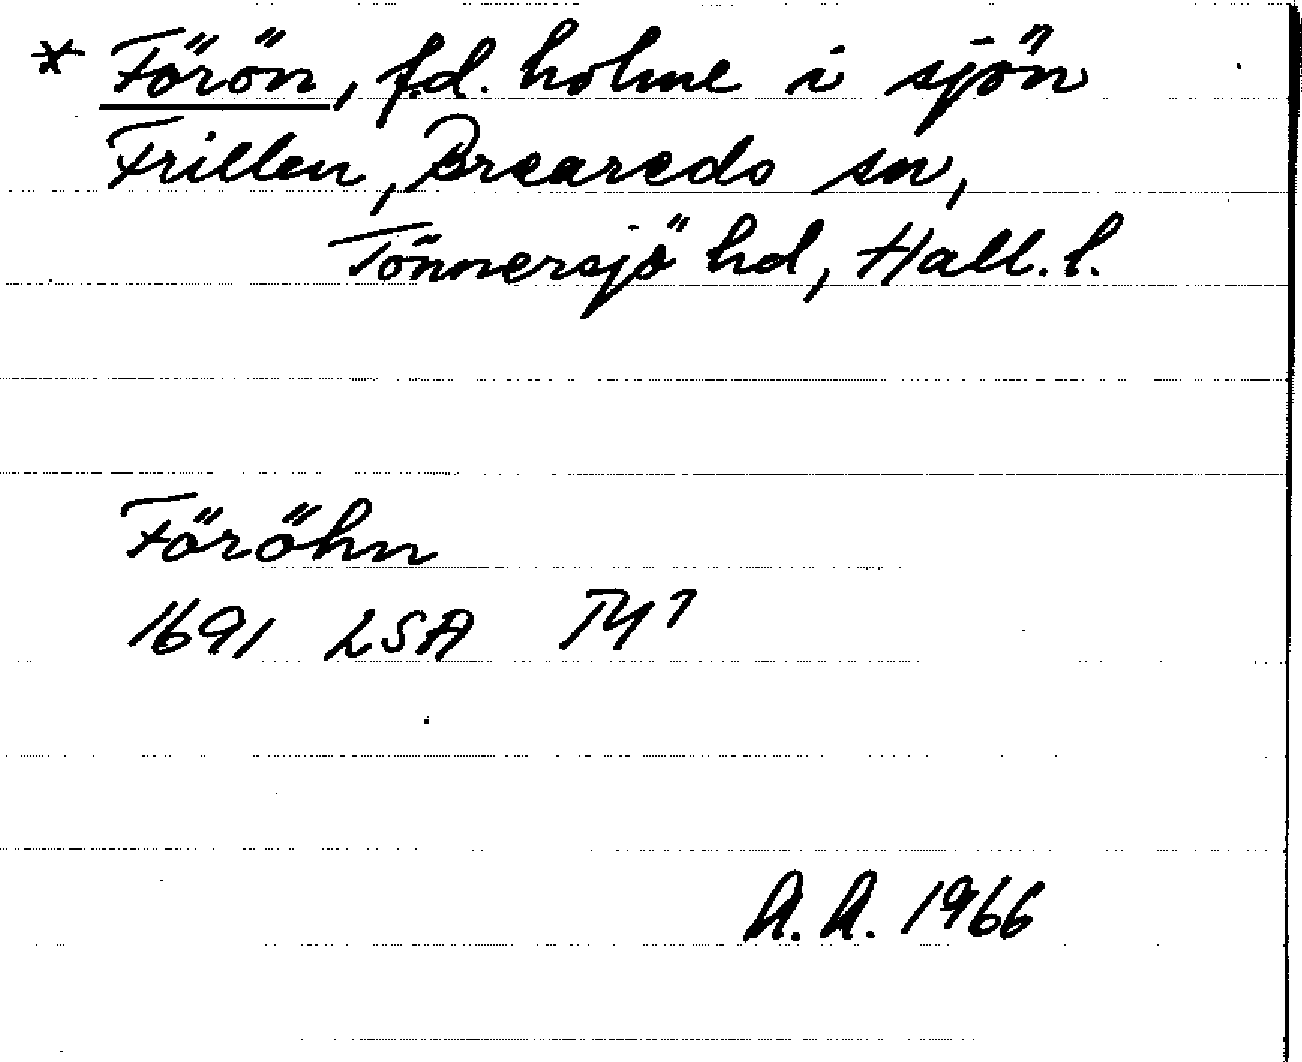 * Förön, f.d. holme i sjön
Frillen, Breareds sn,
Tönnersjö hd, Hall. l.
Föröhn
1691 LSA TY7
A.A. 1966